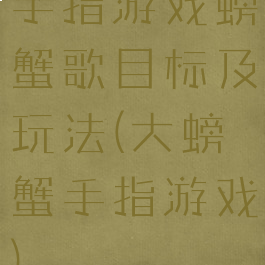 手指游戏螃
蟹歌目标及
玩法(大螃
蟹手指游戏
)